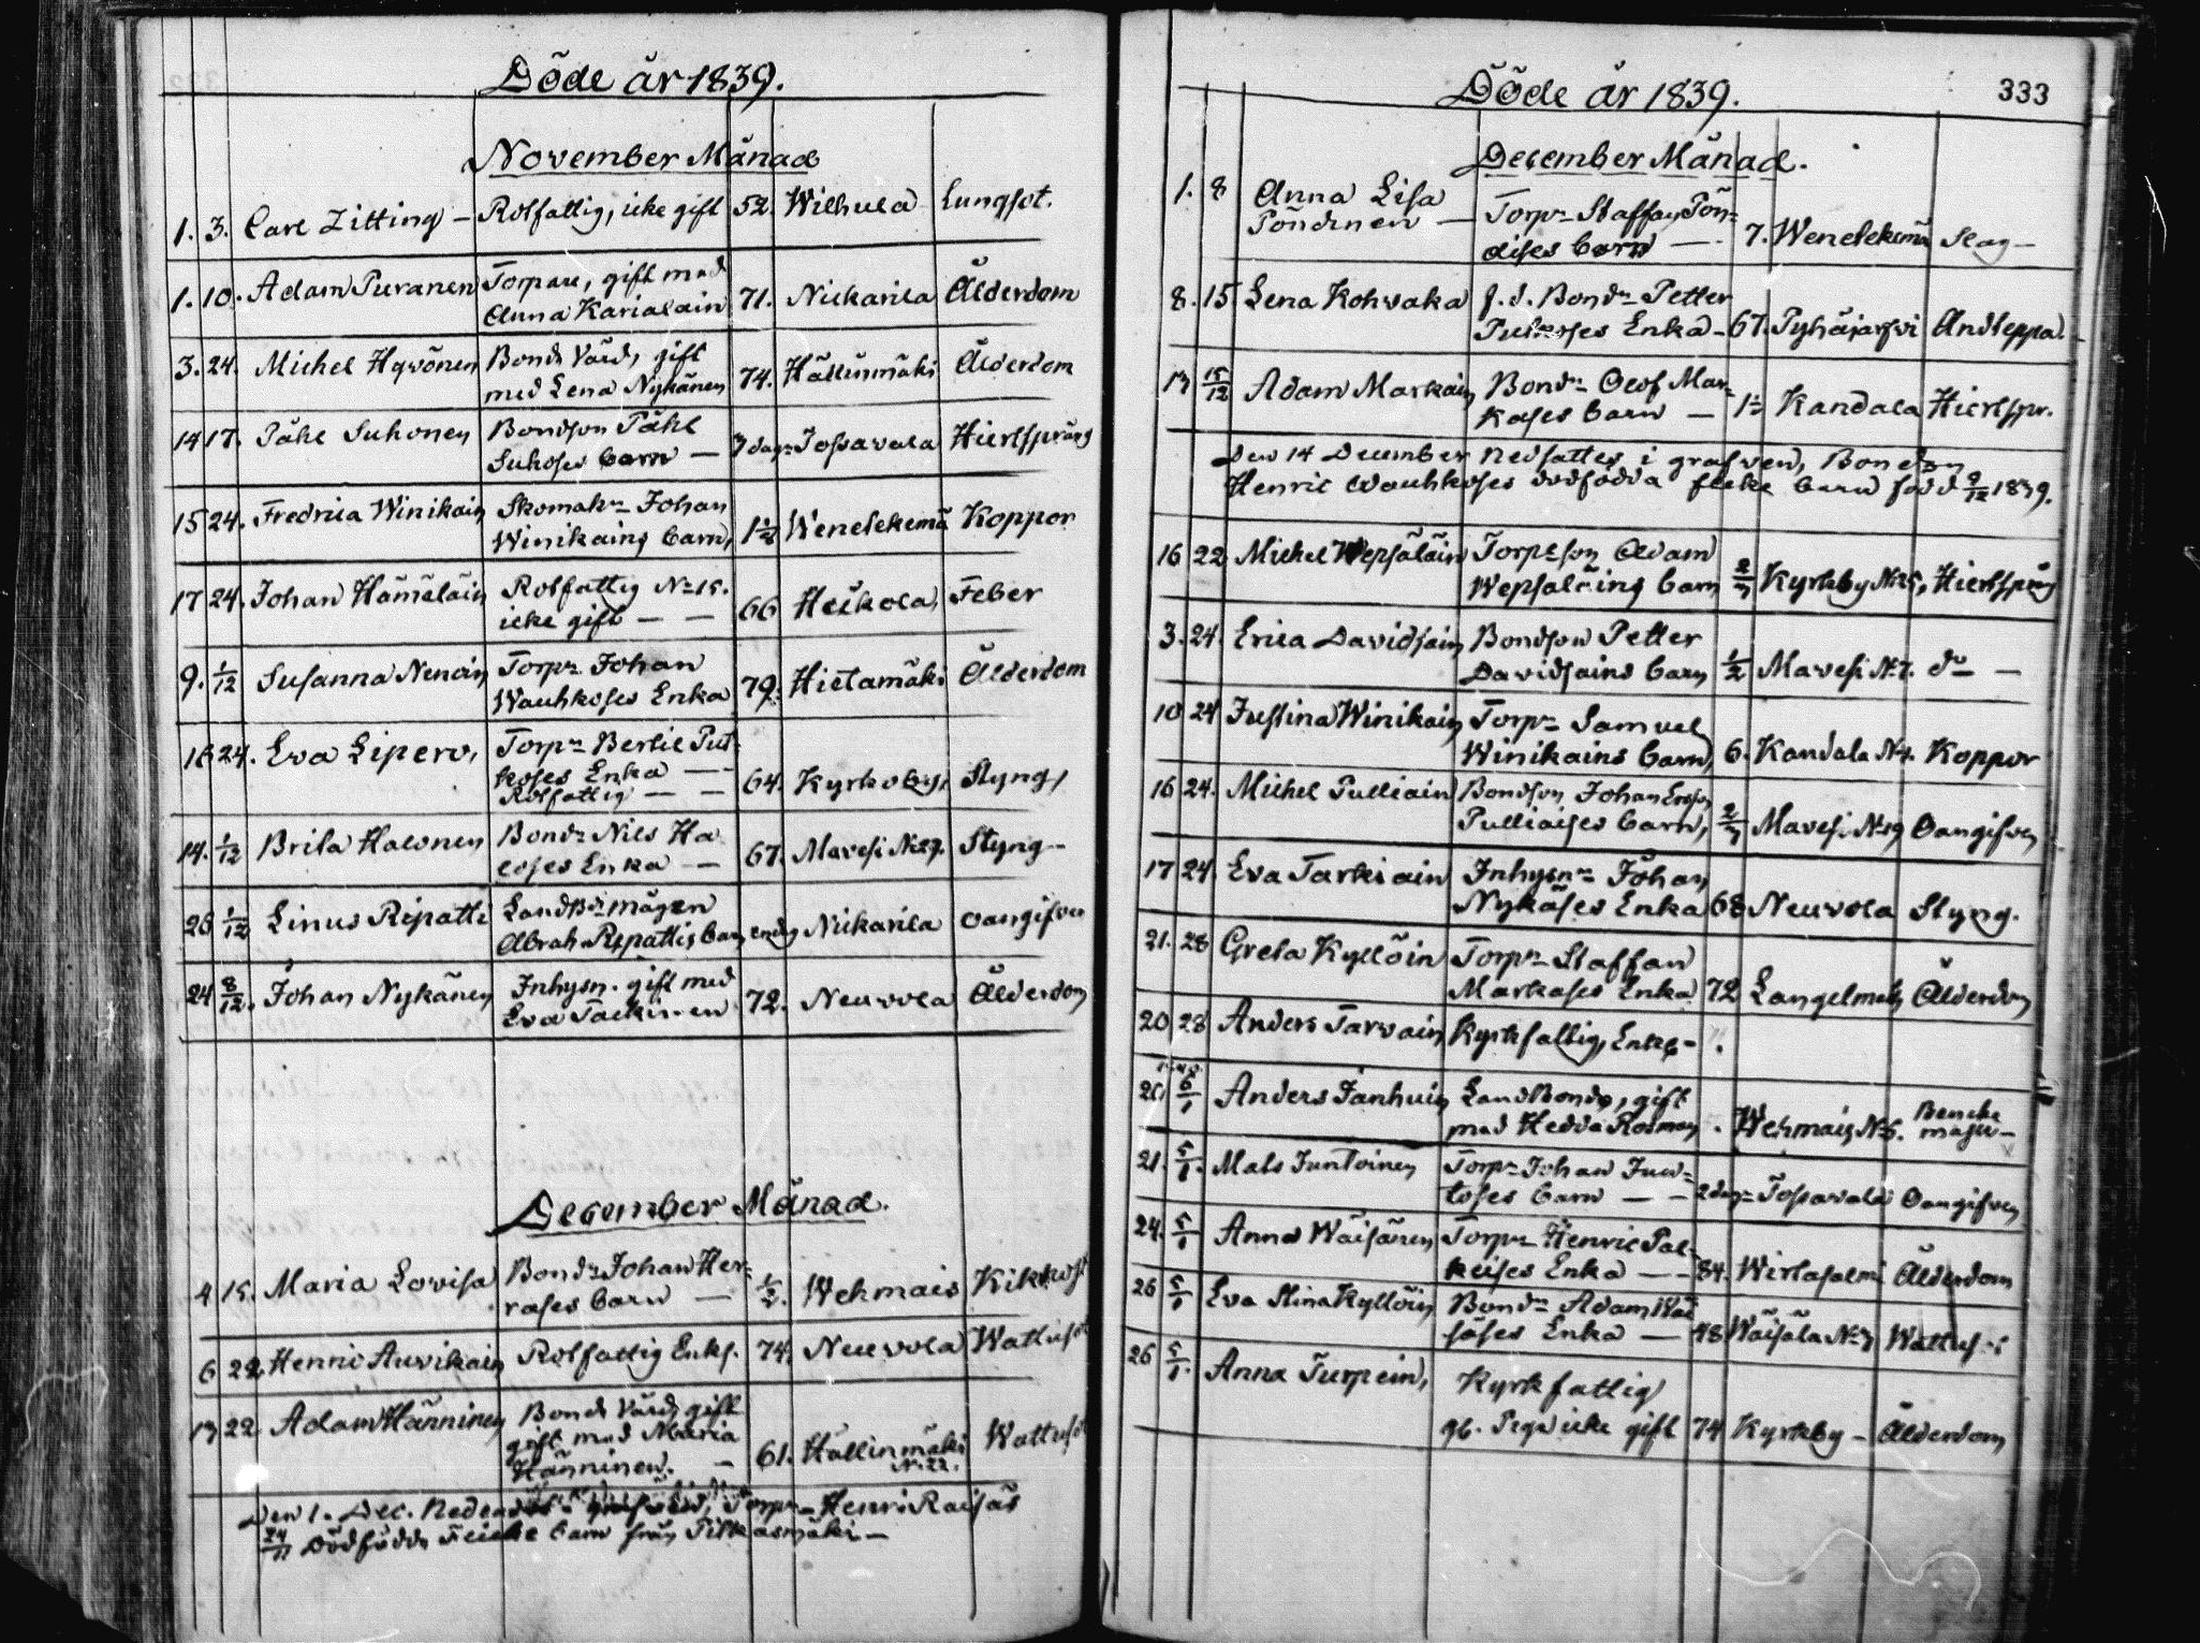 Döde år 1839.
November Månad
1. 3. Carl Zitting — Rotfattig, icke gift 52. Wilhula Lungsot.
1. 10. Adam Puranen Torpare, gift med
Anna Karialain 71. Nickarila Ålderdom
3. 24. Michel Hyvönen Bond Värd, gift
med Lena Nykänen 74. Hällinmäki Ålderdom
14 17. Påhl Suhonen Bondson Påhl
Suhoses barn — 7 dag: Tossavala Hiertsprång
15 24. Fredrica Winikain Skomakr Johan
Winikains barn, 1½ Wenetekemä Koppor
17 24. Johan Hämäläin Rotfattig No 15.
icke gift — — 66 Heikola, Feber
9. 1/12 Susanna Nenoin Torpr Johan
Wauhkoses Enka 79. Hietamäki Ålderdom
16 24. Eva Lipers, Torpr Bertil Put-
koses Enka —
Rotfattig — — 64. Kyrkoby, Styng,
14. 1/12 Brita Halonen Bondr Nils Ha
loses Enka — 67. Mavesi No 27. Styng—
26 1/12 Linus Ripatti Landb: mågen
Abrah Ripattis barn Nickarila oangifven
24 8/12. Johan Nykänen Inhysn. gift med
Eva Tarkiainen 72. Neuvola Ålderdom
December Månad.
4 15. Maria Lovisa Bondr Johan Her-
rases barn — ½. Wehmais Kikhost
6 22 Henric Auvikain Rotfattig Enkl. 74. Neuvola Wattusot
13 22 Adam Hänninen Bond Värd, gift
gift med Maria
Hänninen. — 61. Hällinmäki Wattusot
No 22.
Den 1. Dec. Torpr Henric Raisäs
24/11 Dödfödda Flicke barn från Pitkäsmäki —
Döde år 1839. 333
December Månad.
1. 8 Anna Lisa
Pöndinen — Torpr Staffan Pön-
dises barn — 7. Wenetekemä Slag —
8. 15 Lena Kohvaka f. d. Bondr Petter
Pulkoses Enka — 67. Pyhäjärfvi Andteppa
13 15/12 Adam Markain Bondr Olof Mar-
kases barn — 1½ Kandala Hiertspr.
Den 14 December nedsattes i grafven, Bonden
Henric Wauhkoses dödfödda flicke barn född 9/12 1839.
16 22 Michel Wepsäläin Torpr son Adam
Wepsäläins barn 2/3 Kyrkoby No 25, Hiertspång
3. 24. Erica Davidsain Bondson Petter
Davidsains barn ½ Mavesi No 7. do —
10 24 Justina Winikain Torpr Samuel
Winikains barn 6. Kandala No 4. Koppor
16 24. Michel Pulliain Bondson Johan Ersson
Pulliaises barn, 2/3 Mavesi No 19 Oangifven
17 24. Eva Tarkiain Inhysnr Johan
Nykäses Enka 68 Neuvola Styng.
21. 28 Greta Kyllöin Torpr Staffan
Markases Enka 72 Langelmaki Ålderdom
20 28 Anders Tarvain Kyrkfattig, Enkl —
20 6/1 Anders Janhuin LandBonde, gift
med Hedda Rosman Wehmais No 6. Bencke
21. 5/1. Mats Juntoinen Torpr Johan Jun-
toses barn — — 2 dag: Tossavala Oangifven
24. 5/1 Anna Wäisänen Torpr Henric Pal-
keises Enka — — 84. Wirtasalmi Ålderdom
26 5/1 Eva Stina Kyllöin Bondr Adam Wäi
säses Enka — 48 Wäisälä No 3 Wattusot
26 5/1. Anna Turpein, Kyrkfattig
gb. Piga icke gift 74 Kyrkoby — Ålderdom